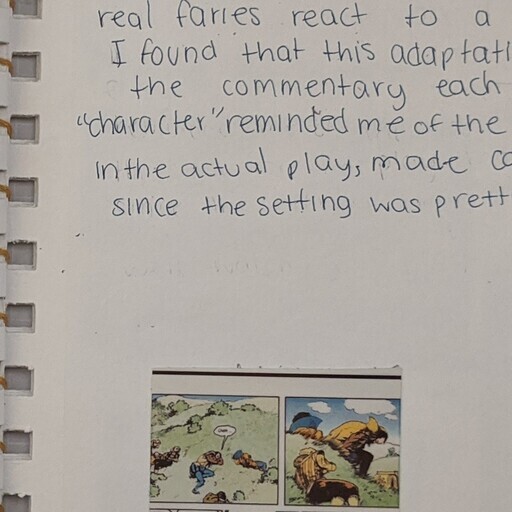 real faries react to a
I found that this adaptati
the commentary each
"character" reminded me of the
in the actual play, made co
since the setting was prett